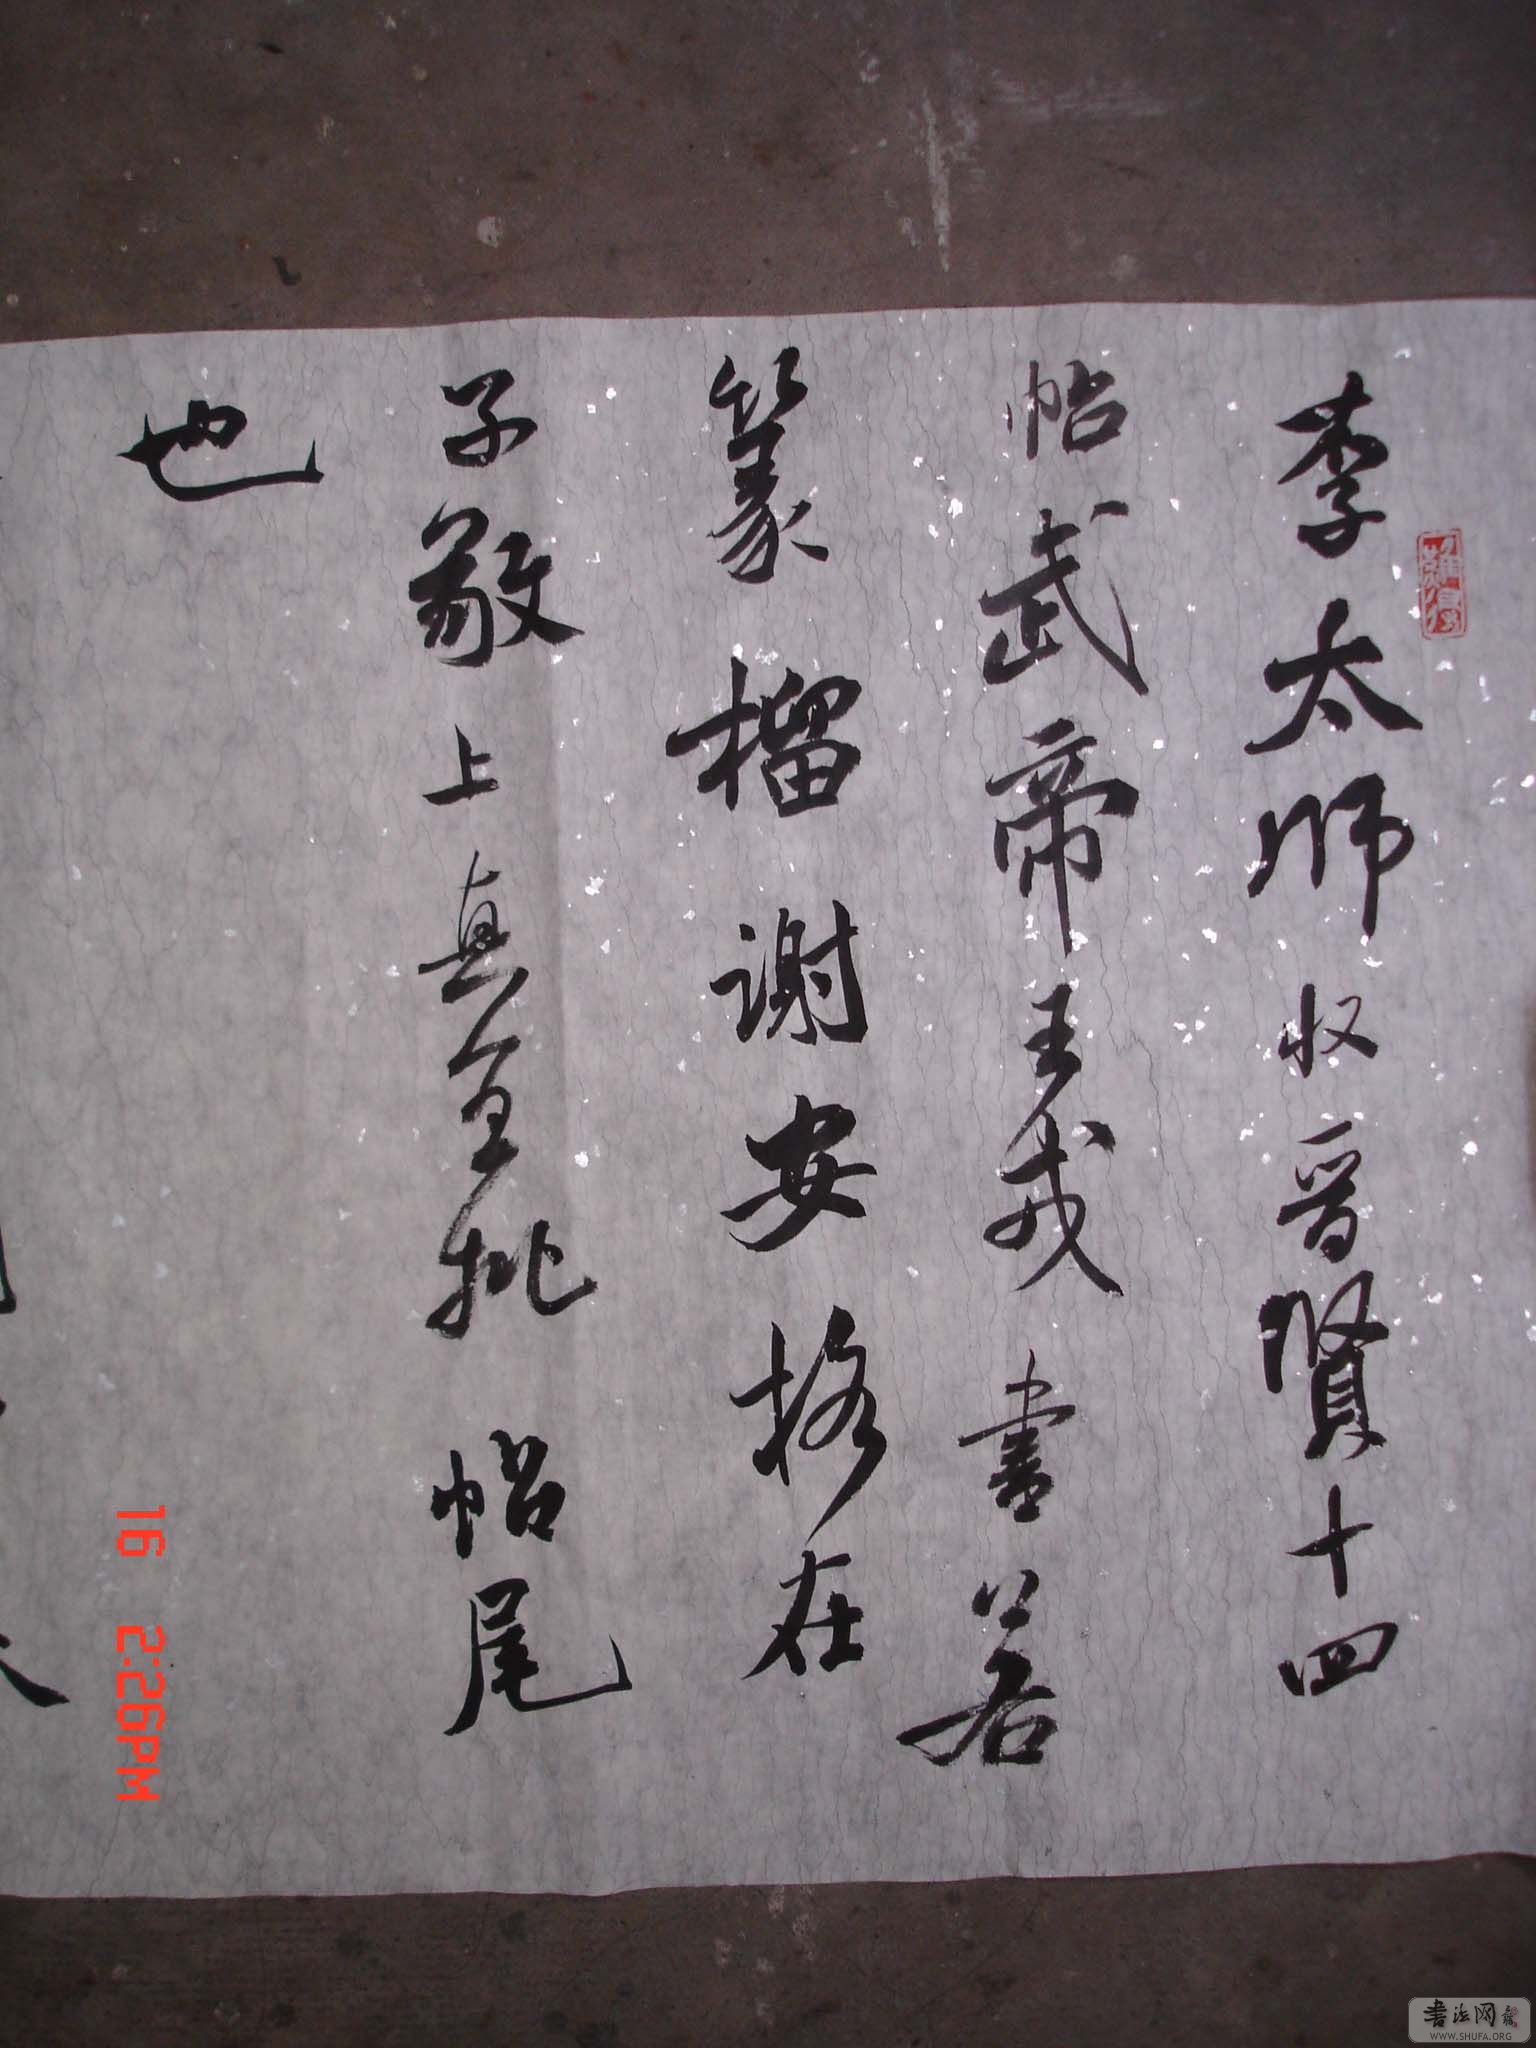 李太师收晋贤十四
帖武帝王戎书若
篆榴谢安格在
子敬上真宜批帖尾
也
16 2:26PM
书法网
WWW.SHUFA.ORG